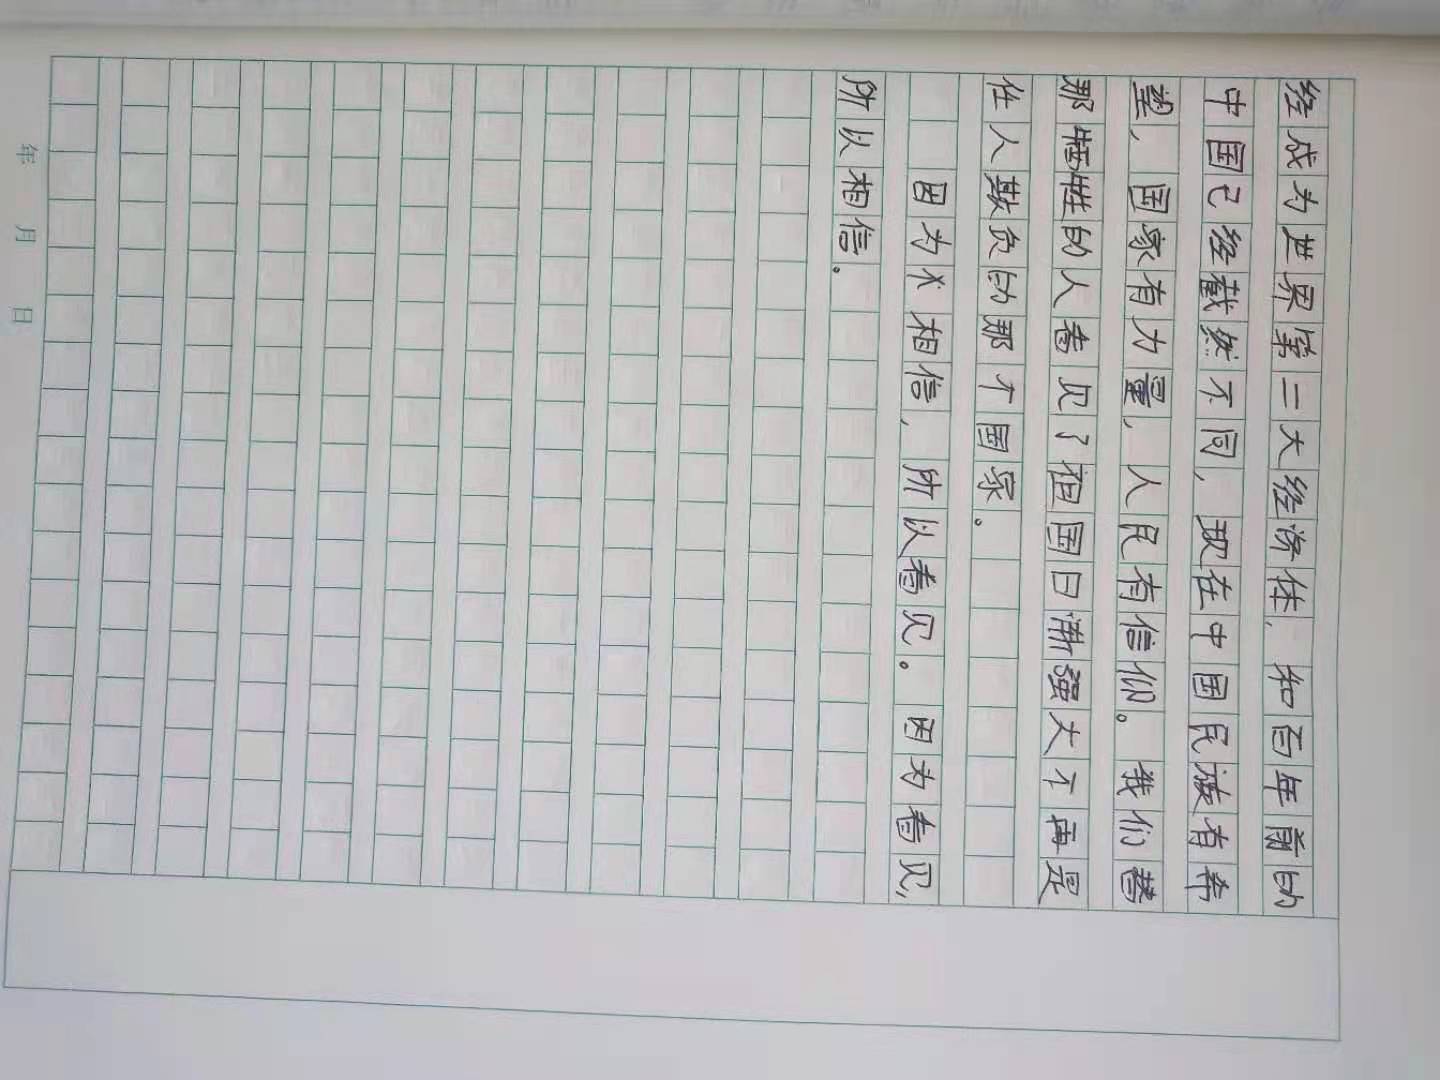 经成为世界第二大经济体，和百年前的
中国已经截然不同，现在中国民族有希
望，国家有力量，人民有信仰。我们替
那牺牲的人看见了祖国日渐强大不再是
任人欺负的那个国家。
因为相信，所以看见。因为看见，
所以相信。
年 月 日